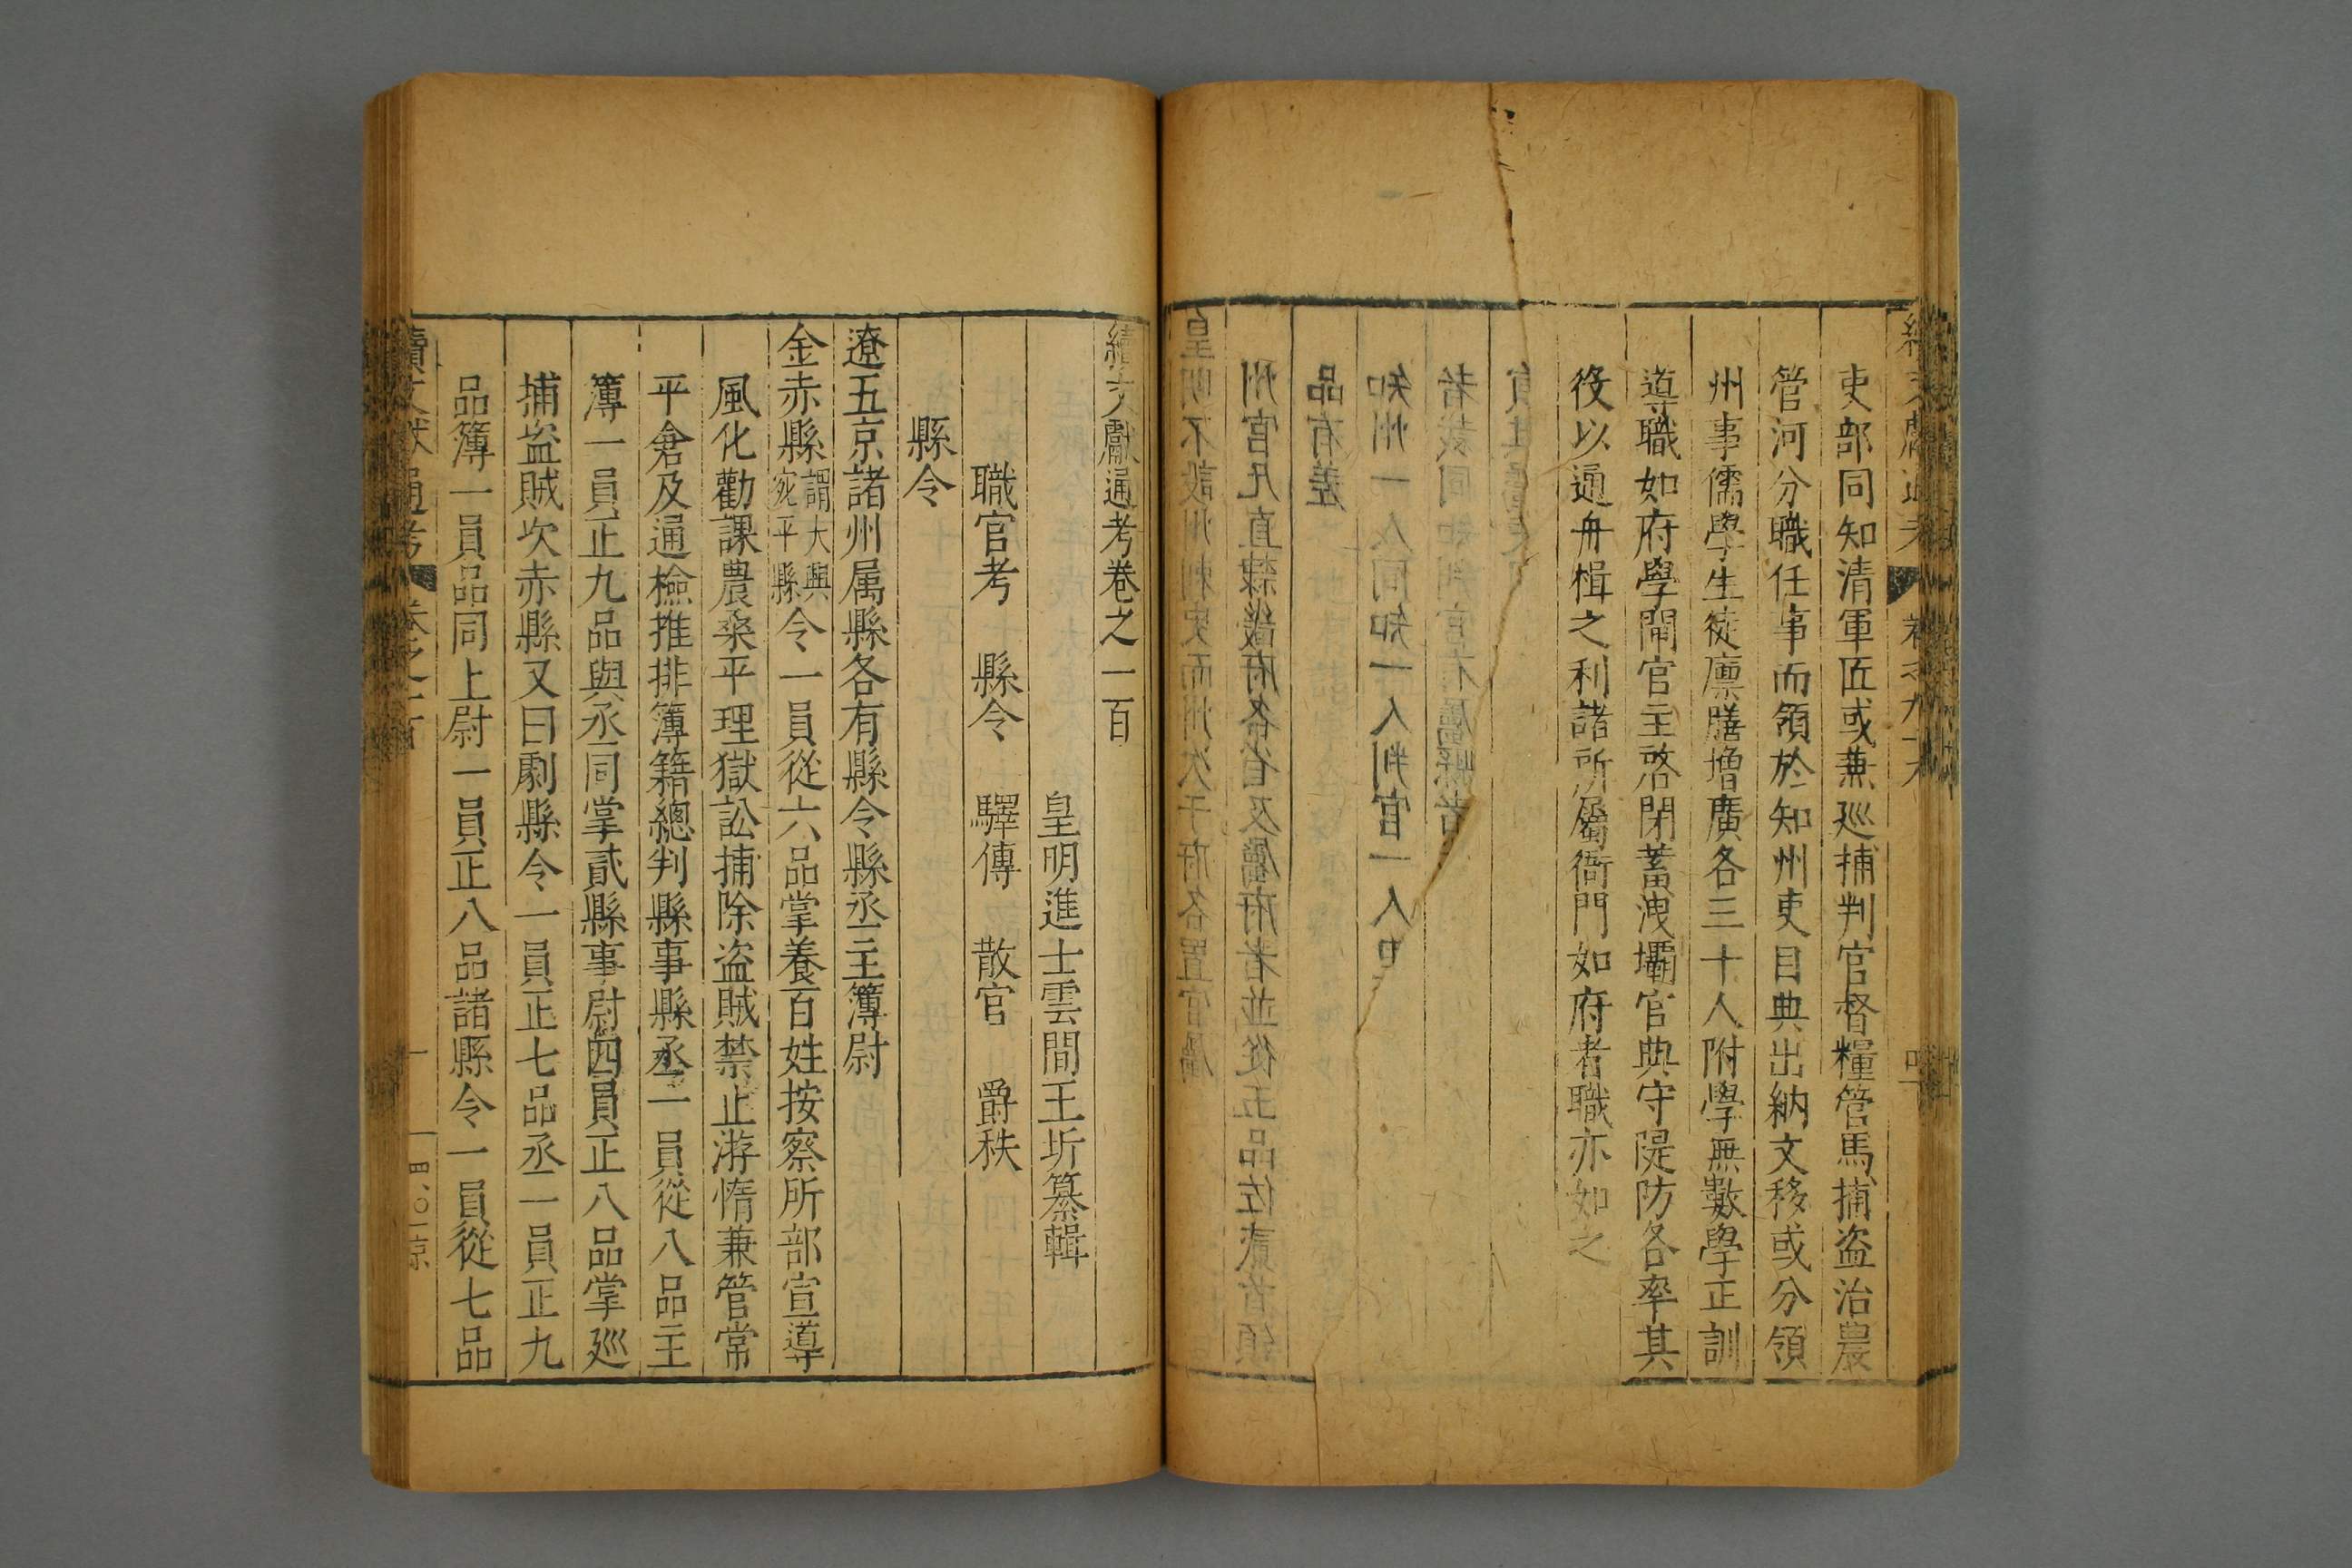 吏部同知清軍匠或兼巡捕判官督糧管馬捕盗治農
管河分職任事而領於知州吏目典出納文移或分領
州事儒學生徒廪膳增廣各三十人附學無數學正訓
導職如府學閘官主啓閉蓄洩壩官典守隄防各率其
役以通舟楫之利諸所屬衙門如府者職亦如之
續文獻通考卷之一百
皇明進士雲間王圻纂輯
職官考 縣令 驛傳 散官 爵秩
縣令
遼五京諸州属縣各有縣令縣丞主簿尉
金赤縣謂大興宛平縣令一員從六品掌養百姓按察所部宣導
風化勸課農桑平理獄訟捕除盗賊禁止游惰兼管常
平倉及通檢推排簿籍總判縣事縣丞一員從八品主
簿一員正九品與丞同掌貳縣事尉四員正八品掌巡
捕盗賊次赤縣又曰劇縣令一員正七品丞一員正九
品簿一員品同上尉一員正八品諸縣令一員從七品
續文獻通考 卷之一百 一